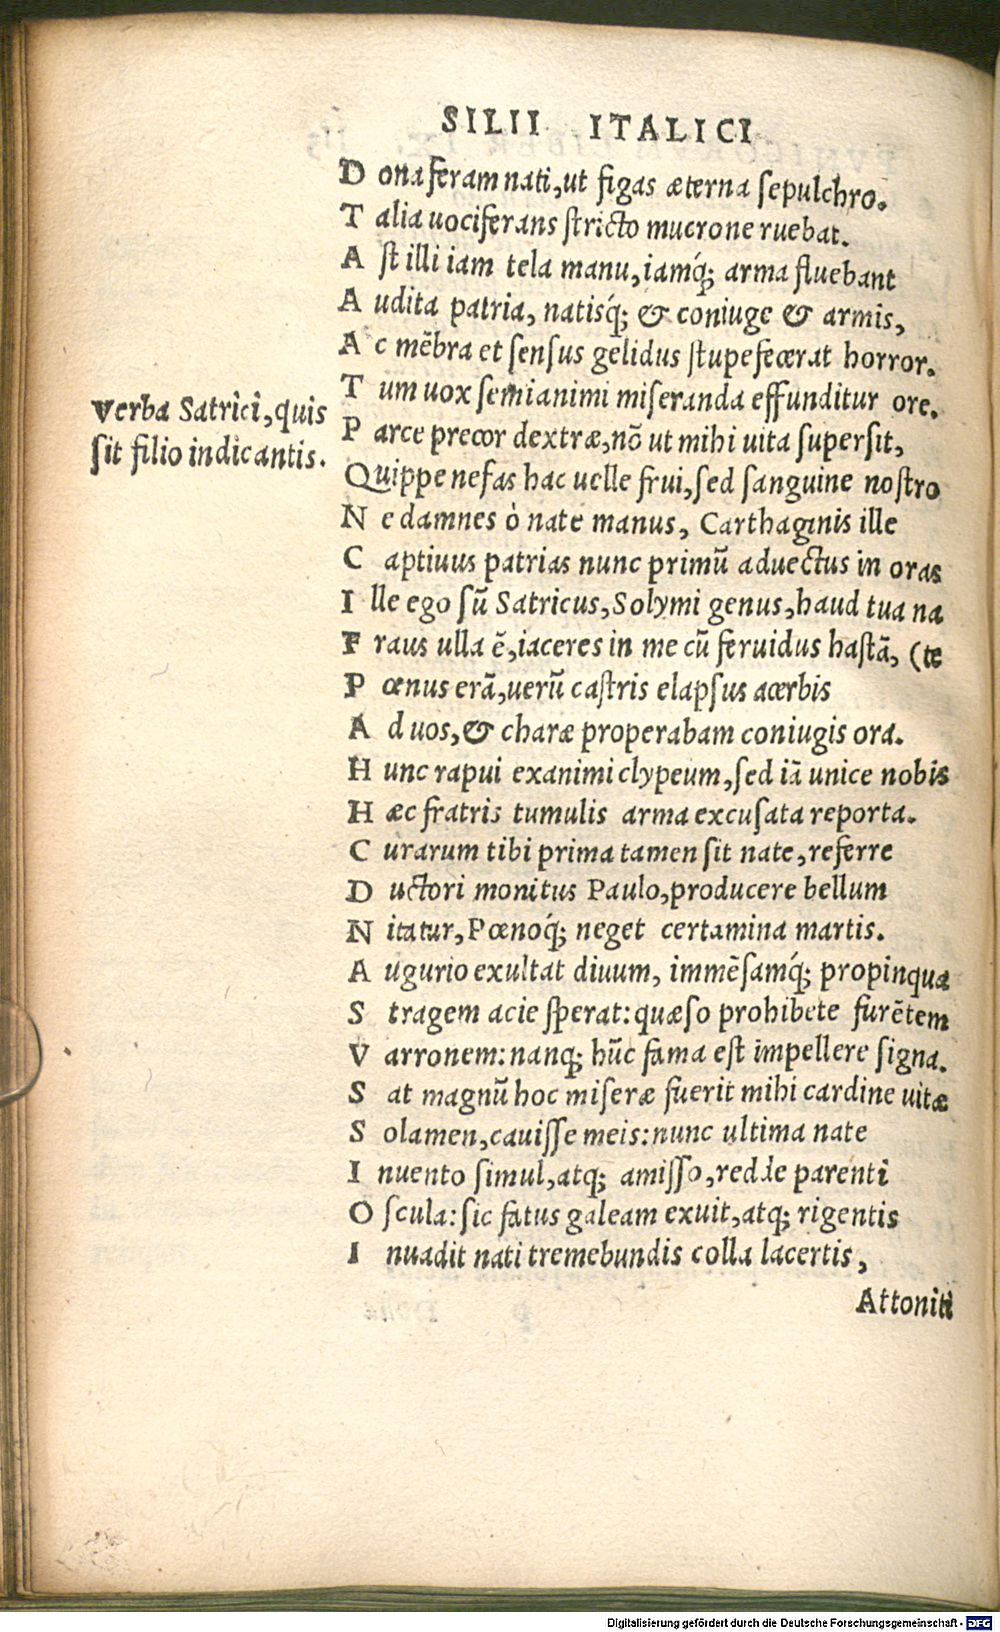 SILII ITALICI
D ona feram nati, ut figas æterna sepulchro.
T alia uociferans stricto mucrone ruebat.
A st illi iam tela manu, iamq́; arma fluebant
A udita patria, natisq́; & coniuge & armis,
A c mẽbra et sensus gelidus stupefecerat horror.
T um uox semianimi miseranda effunditur ore.
Verba Satrici, quis
sit filio indicantis.
P arce precor dextræ, nõ ut mihi uita supersit,
Quippe nefas hac uelle frui, sed sanguine nostro
N e damnes ò nate manus, Carthaginis ille
C aptiuus patrias nunc primũ aduectus in oras
I lle ego sũ Satricus, Solymi genus, haud tua na
F raus ulla ẽ, iaceres in me cũ feruidus hastã, (te
P œnus erã, uerũ castris elapsus acerbis
A d uos, & charæ properabam coniugis ora.
H unc rapui exanimi clypeum, sed iã unice nobis
H æc fratris tumulis arma excusata reporta.
C urarum tibi prima tamen sit nate, referre
D uctori monitus Paulo, producere bellum
N itatur, Pœnoq́; neget certamina martis.
A ugurio exultat diuum, immẽsamq́; propinqua
S tragem acie sperat: quæso prohibete furẽtem
V arronem: nanq; hũc fama est impellere signa.
S at magnũ hoc miseræ fuerit mihi cardine uitæ
S olamen, cauisse meis: nunc ultima nate
I nuento simul, atq; amisso, redde parenti
O scula: sic fatus galeam exuit, atq; rigentis
I nuadit nati tremebundis colla lacertis,
Attoniti
Digitalisierung gefördert durch die Deutsche Forschungsgemeinschaft - DFG